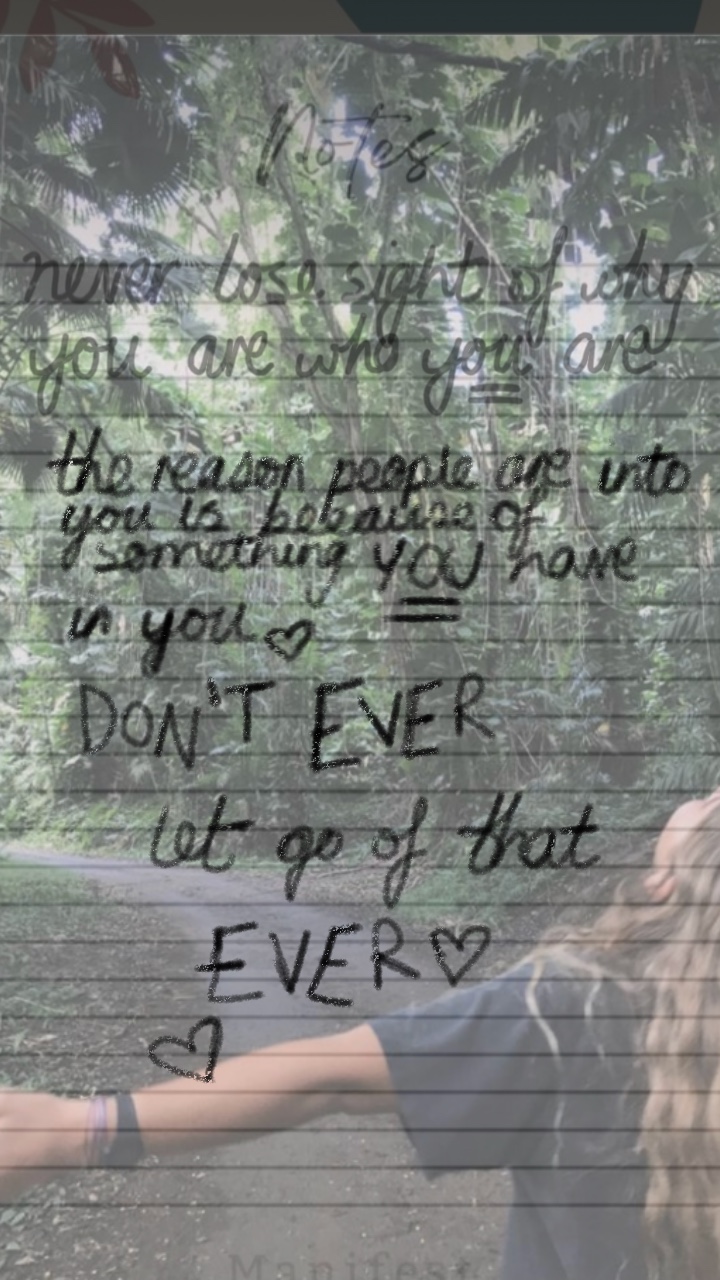 Notes
never lose sight of why
you are who you are
the reason people are into
you is because of
something YOU have
in you ♡
DON'T EVER
let go of that
EVER ♡
♡
Manifest